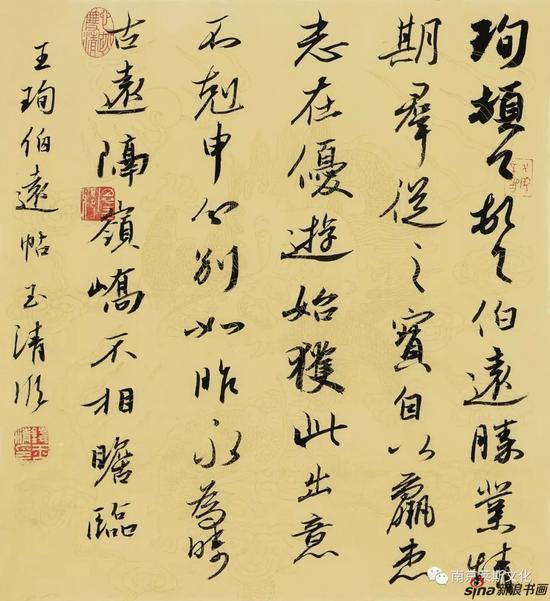 珣頓首頓首伯遠勝業情
期羣從之寶自以羸患
志在優遊始獲此出意
不剋申分別如昨永為疇
古遠隔嶺嶠不相瞻臨
王珣伯遠帖 玉清
南京莱斯文化
sina新浪书画